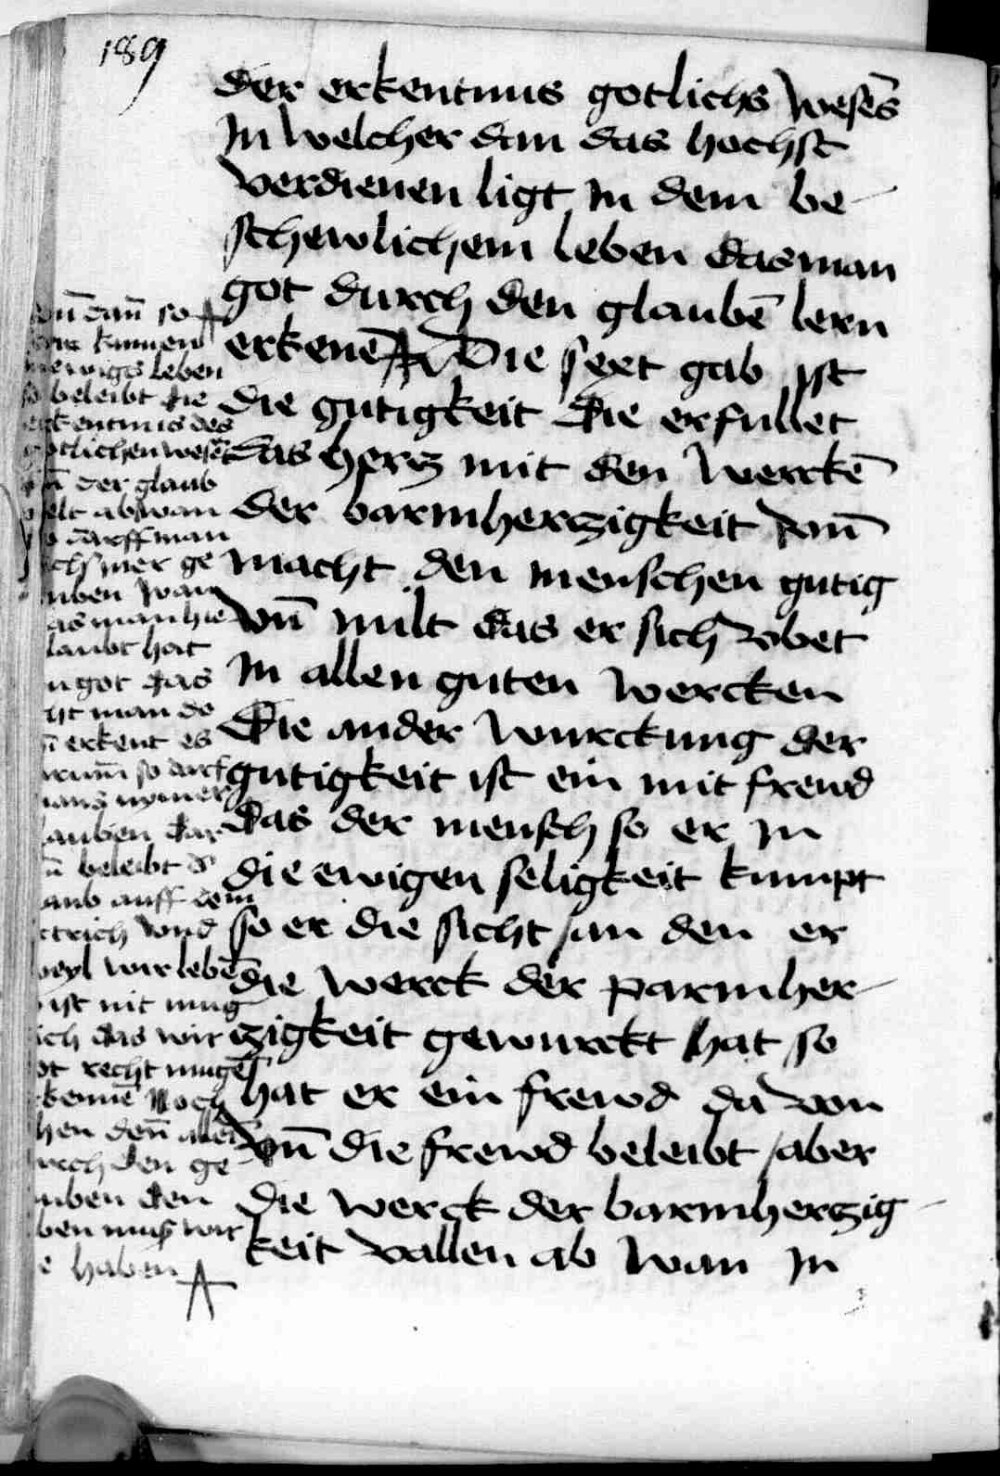 189
der erkentnus gotlichs wesēs
In welcher dan das hochst
verdienen ligt In dem be-
schewlichem leben das man
got durch den glaubē lern
erkenē Die sext gab ist
die gutigkeit die erfullet
das hertz mit den werckē
der barmhertzigkeit vnd
macht den menschen gutig
vn̄ milt das er sich vbet
In allen guten wercken
Die ander wurckung der
gutigkeit ist ein mit frewd
das der mensch so er In
die ewigen seligkeit kumpt
so er die sicht an den er
die werck der parmher-
tzigkeit gewurckt hat so
hat er ein frewd da von
vn̄ die frewd beleibt aber
die werck der barmhertzig-
keit vallen ab wan In
dan̄ so
kumen
ewigs leben
beleibt die
erkentnus des
gotlichen wesēs
der glaub
felt ab wan
darff man
nichs mer ge
uben wan
das man hie
glaubt hat
In got das
sicht man do
vn̄ erkent es
warum̄ so darf
mans nymer
glauben dar
um̄ beleibt d
glaub auff dem
ertrich vnd
weyl wir lebē
ist nit mug
lich das wir
got recht mugē
erkennē Noch
sehen den̄ allein
durch den ge
lauben den
uben mus wir
hie haben